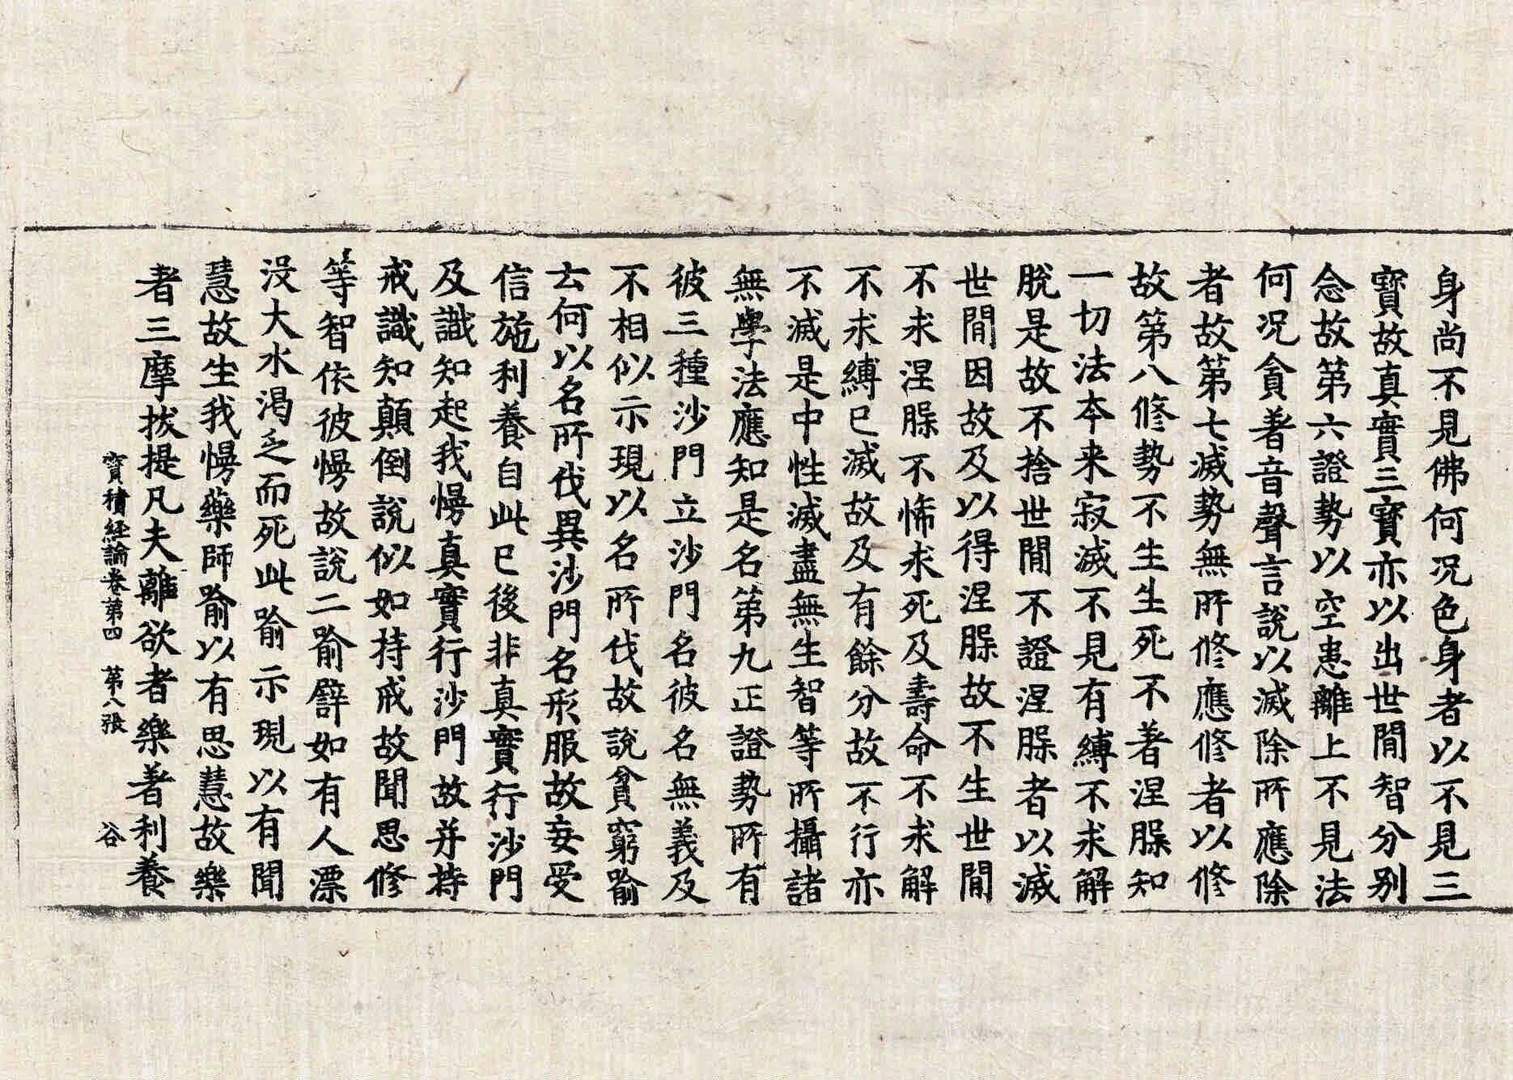 身尚不見佛何况色身者以不見三
寶故真實三寶亦以出世間智分別
念故第六證勢以空患離上不見法
何况貪著音聲言說以滅除所應除
者故第七滅勢無所修應修者以修
故第八修勢不生生死不著涅槃知
一切法本来寂滅不見有縛不求解
脫是故不捨世間不證涅槃者以滅
世間因故及以得涅槃故不生世間
不求涅槃不怖求死及壽命不求解
不求縛已滅故及有餘分故不行亦
不滅是中性滅盡無生智等所攝諸
無學法應知是名第九正證勢所有
彼三種沙門立沙門名彼名無義及
不相似示現以名所伐故說貧窮喻
去何以名所伐異沙門名形服故妄受
信施利養自此已後非真實行沙門
及識知起我慢真實行沙門故并持
戒識知顛倒說似如持戒故聞思修
等智依彼慢故說二喻譬如有人漂
沒大水渴乏而死此喻示現以有聞
慧故生我慢藥師喻以有思慧故樂
者三摩拔提凡夫離欲者樂著利養
寶積經論卷第四　第八張　谷